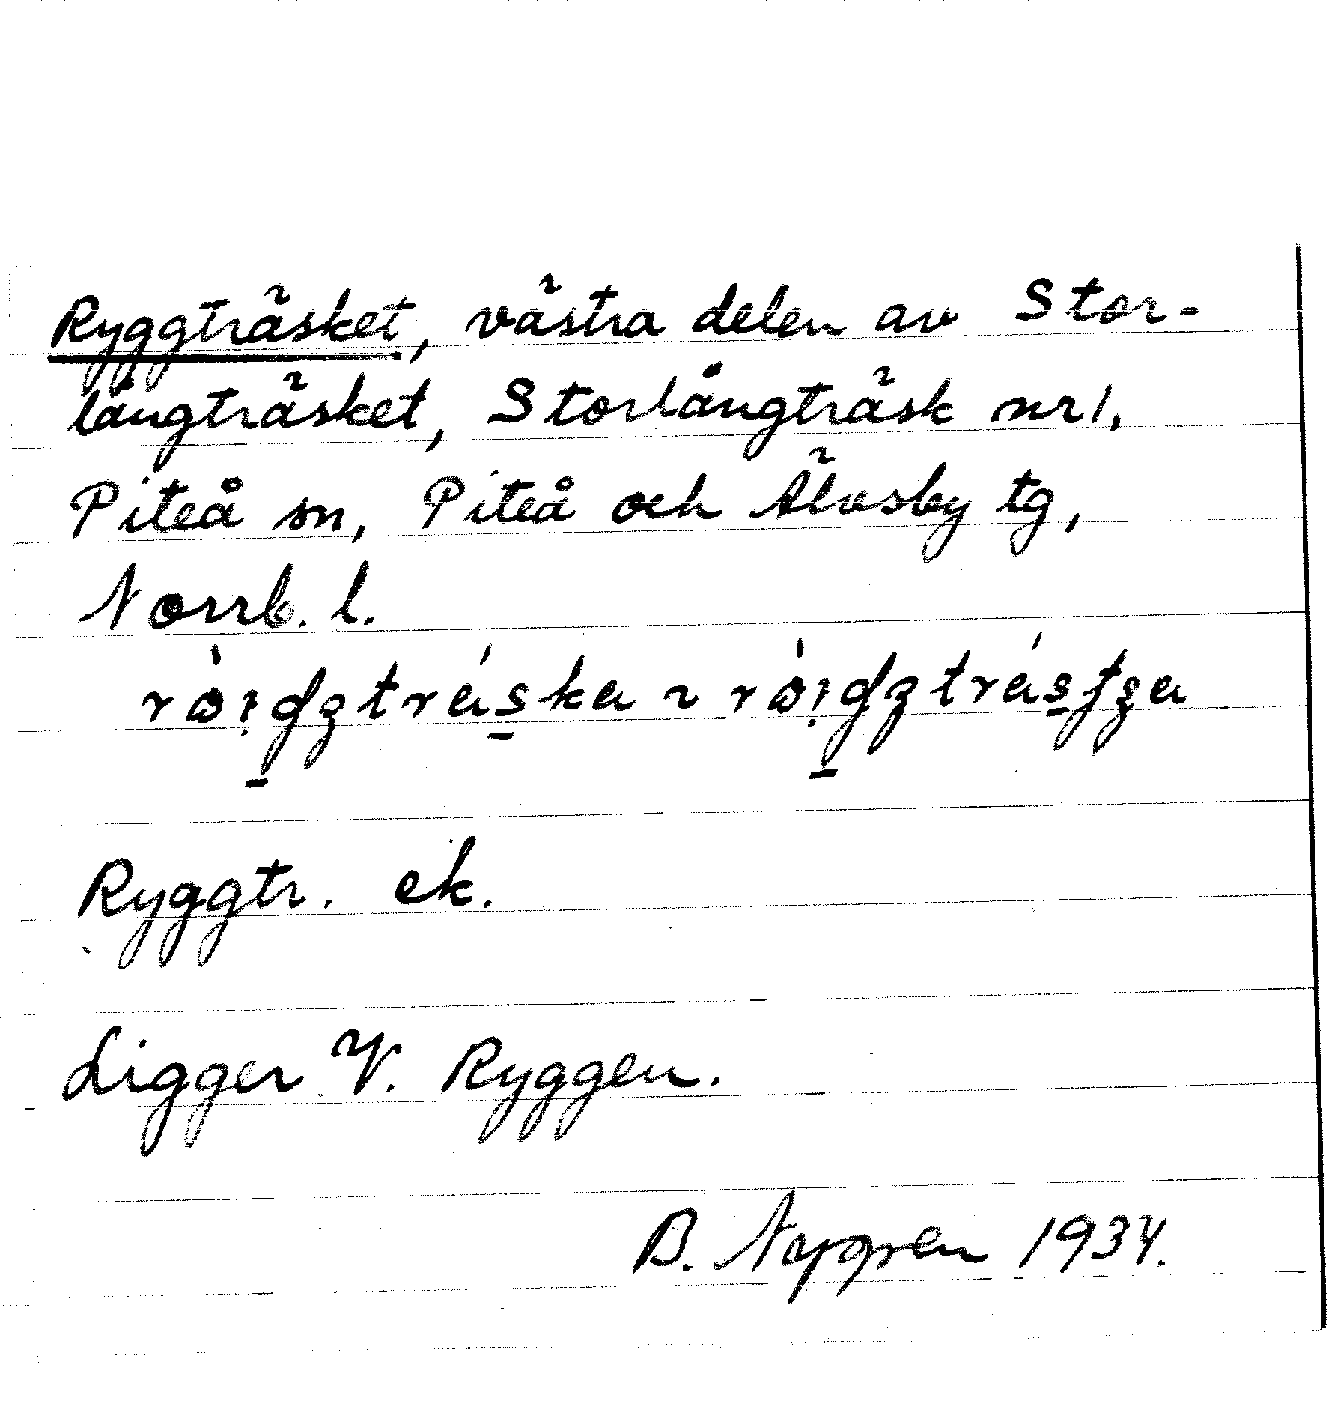 Ryggträsket, västra delen av Stor-
långträsket, Storlångträsk nr 1,
Piteå sn, Piteå och Älvsby tg,
Norrb. l.
Ryggtr. ek.
Ligger V. Ryggen.
B. Nygren 1934.